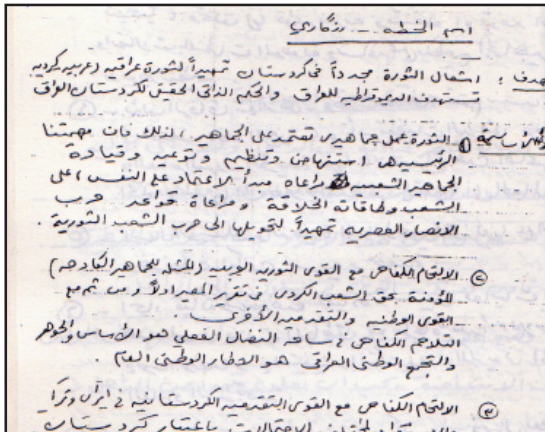 اسم الخطة - رزگاري
الهدف : اشعال الثورة مجدداً في كردستان تمهيداً لثورة عراقية (عربية كردية
تستهدف الديمقراطية للعراق والحكم الذاتي الحقيقي لكردستان العراق
① الثورة عمل جماهيري تعتمد على الجماهير، لذلك فان مهمتنا
الرئيسية هي استنهاض وتنظيم وتوعية وقيادة
الجماهير الشعبية مراعاة مبدأ الاعتماد على النفس، على
الشعب وطاقاته الخلاقة ومراعاة قواعد حرب
الانصار العصرية تمهيداً لتحويلها الى حرب الشعب الثورية .
② الالتحام الكفاحي مع القوى الثورية العربية (الممثلة للجماهير الكادحة)
المؤمنة بحق الشعب الكردي في تقرير المصير اولاً ومن ثم مع
القوى الوطنية والتقدمية الاخرى
التلاحم الكفاحي في ساحة النضال الفعلي هو الاساس والجوهر
والتجمع الوطني العراقي هو الاطار الوطني العام
③ الالتحام الكفاحي مع القوى التقدمية الكردستانية في ايران وتركيا
كردستان